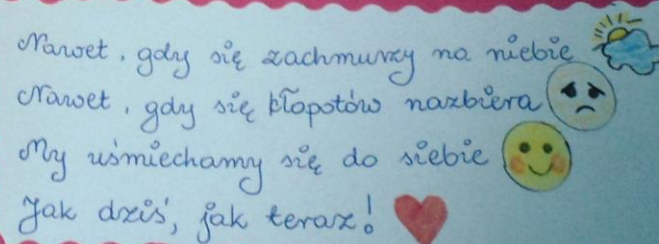 Nawet, gdy się zachmurzy na niebie
Nawet, gdy się kłopotów nazbiera
My uśmiechamy się do siebie
Jak dziś, jak teraz!